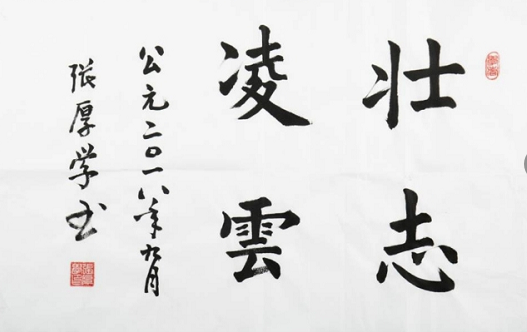 壮志
凌雲
公元二〇一八年九月
張厚学书